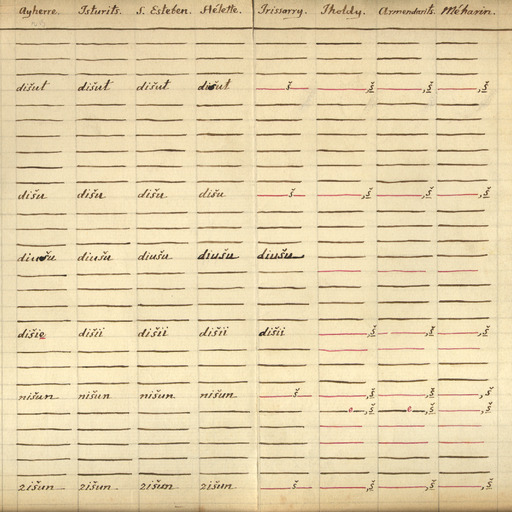 Ayherre. Isturits. S. Esteben. Hélette. Irissarry. Iholdy. Armendarits. Méharin.
dišut dišut dišut dišut š ,š ,š ,š
dišu dišu dišu dišu š ,š ,š ,š
diušu diušu diušu diušu diušu
dišie dišii dišii dišii dišii ,š ,š ,š
nišun nišun nišun nišun š ,š ,š ,š
e ,š e ,š ,š
zišun zišun zišun zišun š ,š ,š ,š